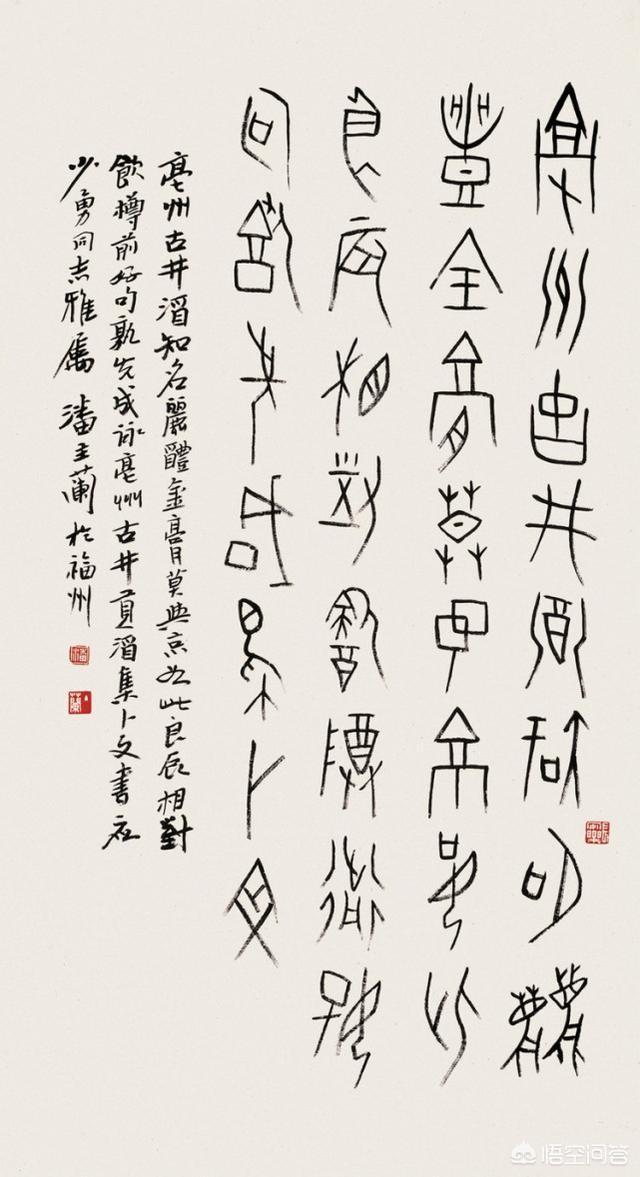 亳州古井酒知名麗
醴金膏莫與京如此
良辰相對飲樽前好
句孰先成集卜文
亳州古井酒知名麗醴金膏莫與京如此良辰相對
飲樽前好句孰先成詠亳州古井貢酒集卜文書應
少勇同志雅屬潘主蘭於福州
悟空问答